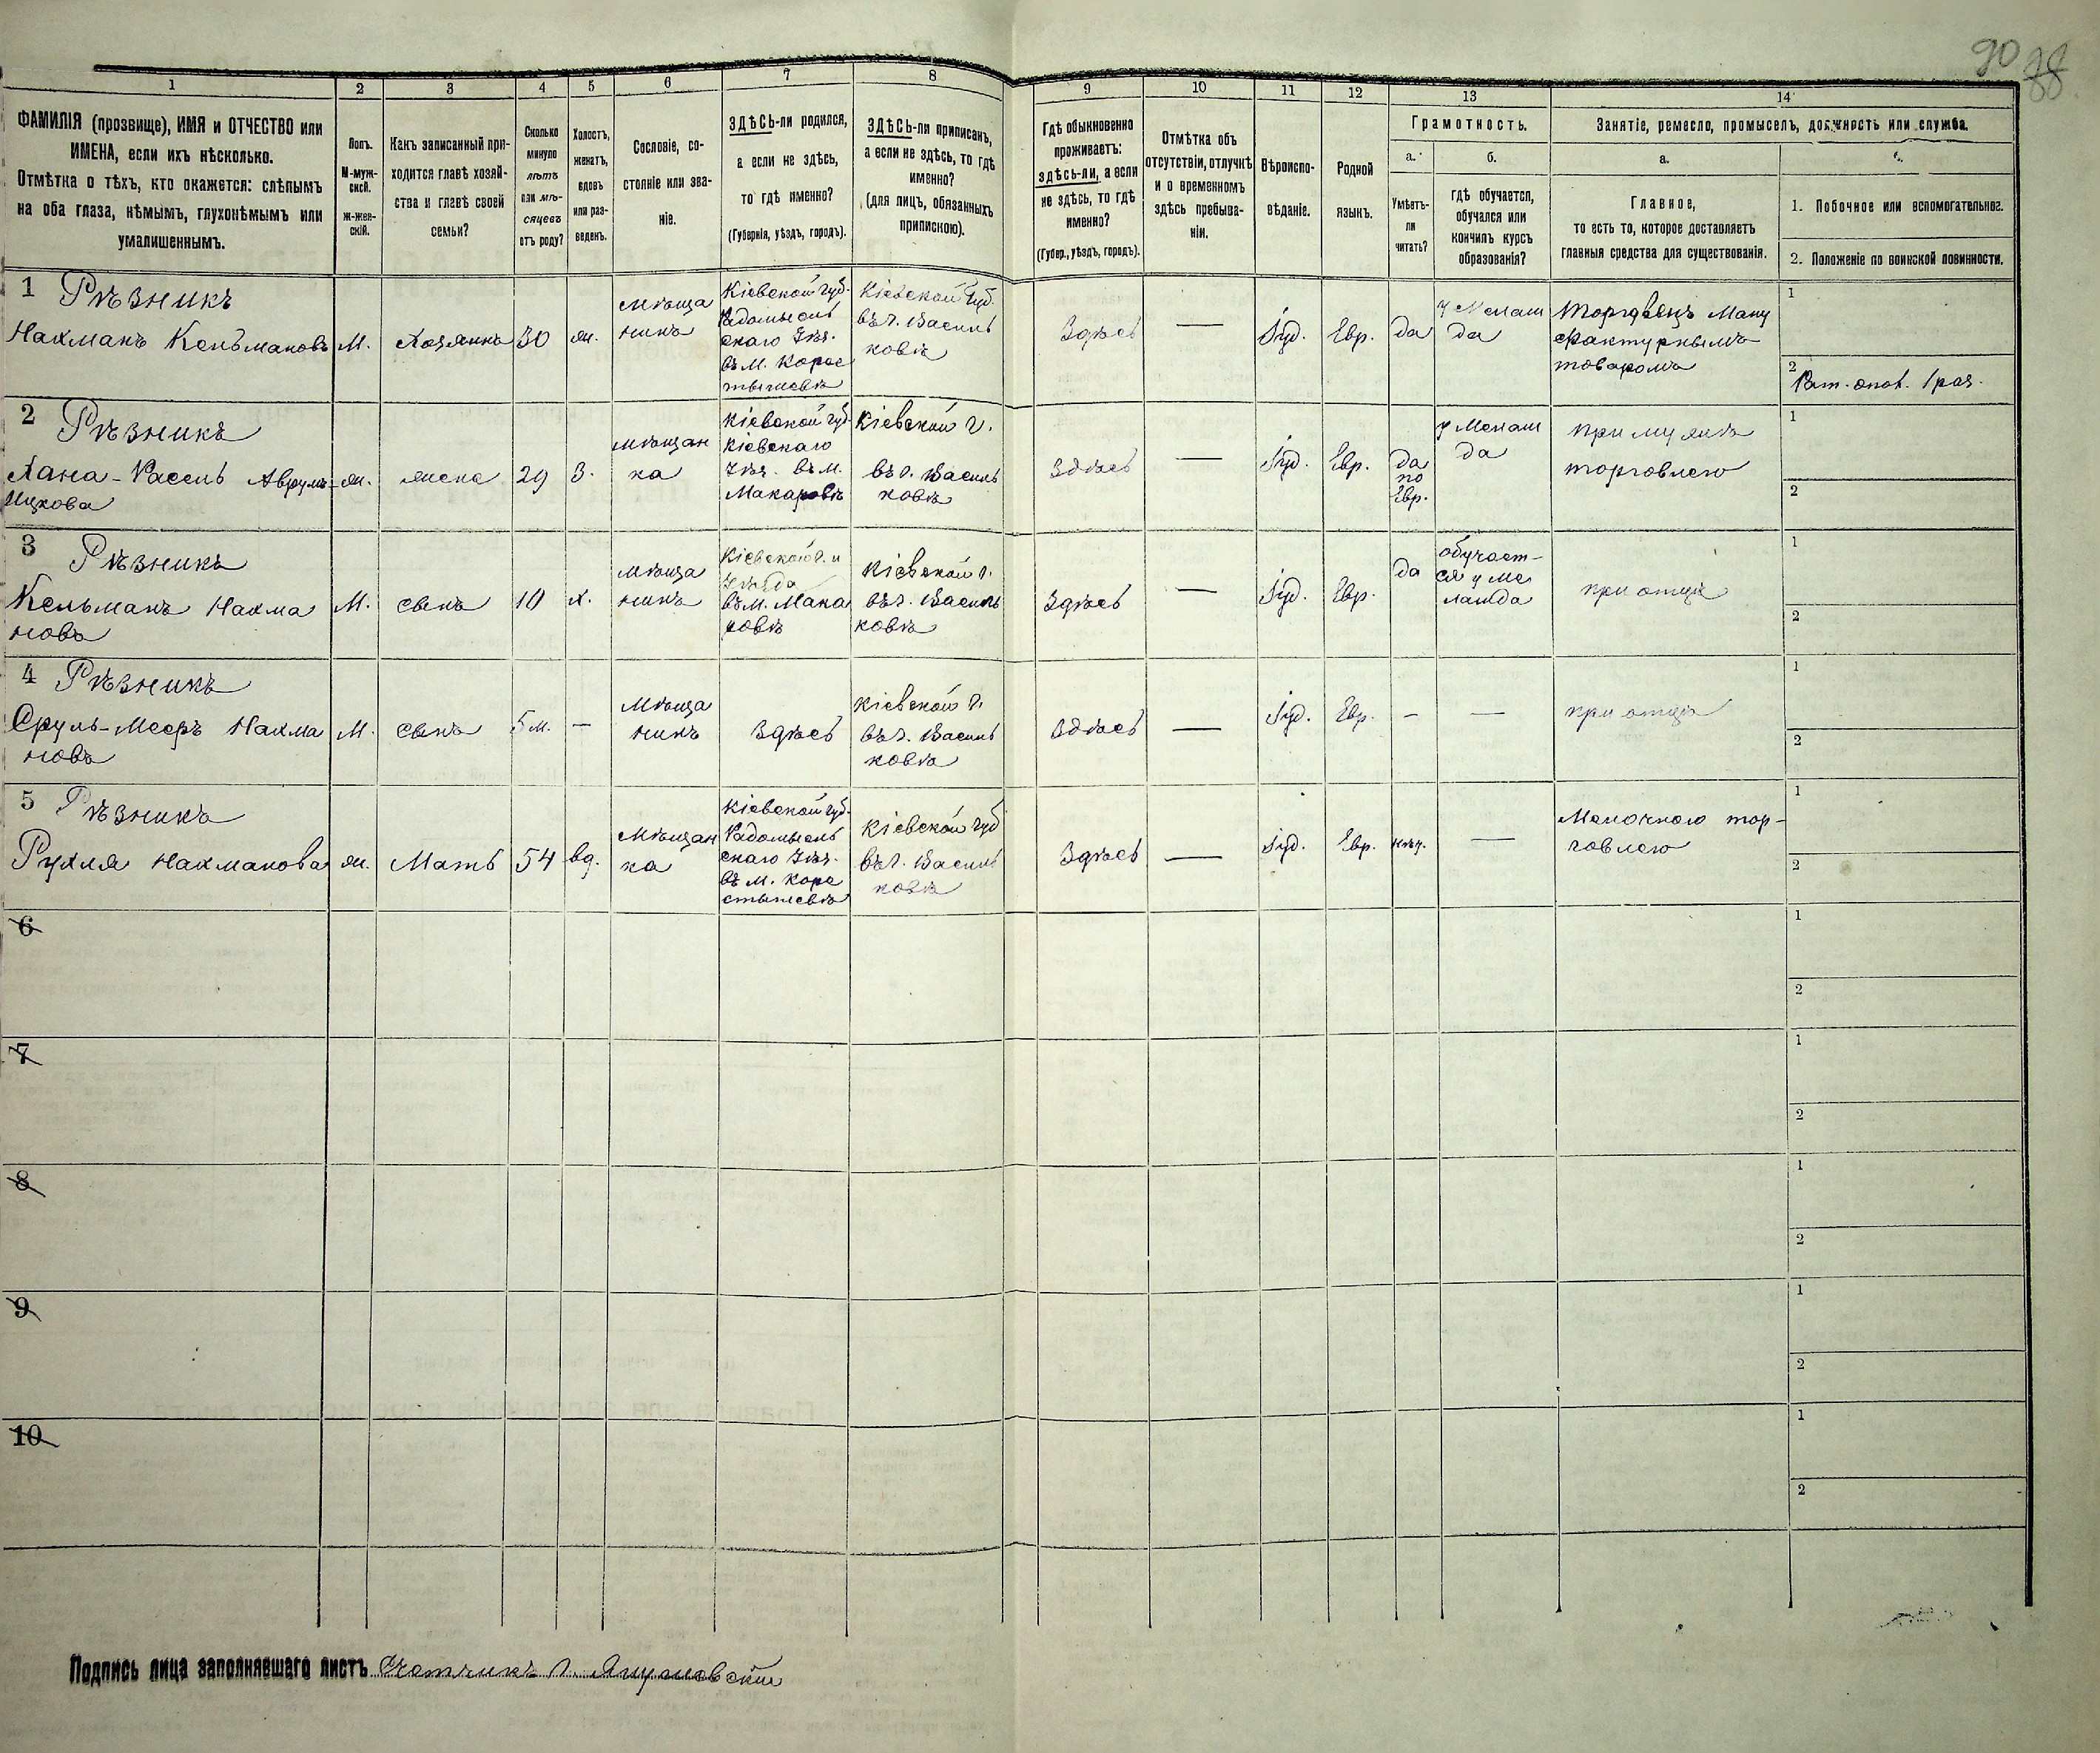 90 88
1 2 3 4 5 6 7 8 9 10 11 12 13 14
ФАМИЛІЯ (прозвище), ИМЯ и ОТЧЕСТВО или
ИМЕНА, если ихъ нѣсколько.
Отмѣтка о тѣхъ, кто окажется: слѣпымъ
на оба глаза, нѣмымъ, глухонѣмымъ или
умалишеннымъ.
Полъ.
М-муж-
ской.
ж-жен-
скій.
Какъ записанный при-
ходится главѣ хозяй-
ства и главѣ своей
семьи?
Сколько
минуло
лѣтъ
или мѣ-
сяцевъ
отъ роду?
Холостъ,
женатъ,
вдовъ
или раз-
веденъ.
Сословіе, со-
стояніе или зва-
ніе.
ЗДѢСЬ-ли родился,
а если не здѣсь,
то гдѣ именно?
(Губернія, уѣздъ, городъ).
ЗДѢСЬ-ли приписанъ,
а если не здѣсь, то гдѣ
именно?
(для лицъ, обязанныхъ
припискою).
Гдѣ обыкновенно
проживаетъ:
здѣсь-ли, а если
не здѣсь, то гдѣ
именно?
(Губер., уѣздъ, городъ).
Отмѣтка объ
отсутствіи, отлучкѣ
и о временномъ
здѣсь пребыва-
ніи.
Вѣроиспо-
вѣданіе.
Родной
языкъ.
Грамотность.
а.
Умѣетъ-
ли
читать?
б.
гдѣ обучается,
обучался или
кончилъ курсъ
образованія?
Занятіе, ремесло, промыселъ, должность или служба.
а.
Главное,
то есть то, которое доставляетъ
главныя средства для существованія.
1. Побочное или вспомогательное.
2. Положеніе по воинской повинности.
1 Рѣзникъ
Нахманъ Кельмановъ
М.
Хозяинъ
30
ж.
Мѣща
нинъ
Кіевской губ.
Радомысль
скаго Уѣз.
въ м. Корос
тышевѣ
Кіевской губ.
въ г. Василь
ковѣ
Здѣсь
—
Іуд.
Евр.
да
У Мелам
да
Торговецъ Ману
фактурнымъ
товаромъ
1
2
Рат. опол. 1 раз.
2 Рѣзникъ
Хана-Рассль Аврумъ-
Ицкова
ж.
жена
29
З.
мѣщан
ка
Кіевской губ.
Кіевскаго
Уѣз. въ м.
Макаровѣ
Кіевской г.
въ г. Василь
ковѣ
Здѣсь
—
Іуд.
Евр.
да
по
Евр.
У Мелам
да
при мужѣ
торговлею
1
2
3 Рѣзникъ
Кельманъ Нахма
новъ
М.
сынъ
10
х.
мѣща
нинъ
Кіевской г. и
Уѣзда
въ м. Мака
ровѣ
Кіевской г.
въ г. Василь
ковѣ
Здѣсь
—
Іуд.
Евр.
да
обучает-
ся у Ме
ламда
при отцѣ
1
2
4 Рѣзникъ
Сруль-Мееръ Нахма
новъ
М.
сынъ
5 м.
—
Мѣща
нинъ
Здѣсь
Кіевской г.
въ г. Василь
ковѣ
Здѣсь
—
Іуд.
Евр.
—
—
при отцѣ
1
2
5 Рѣзникъ
Рухля Нахманова
ж.
Мать
54
вд.
Мѣщан
ка
Кіевской губ.
Радомысль
скаго Уѣз.
въ м. Коро
стышевѣ
Кіевской губ
въ г. Василь
ковѣ
Здѣсь
—
Іуд.
Евр.
нѣт.
—
Мелочною тор-
говлею
1
2
6
1
2
7
1
2
8
1
2
9
1
2
10
1
2
Подпись лица заполнявшаго листъ Счетчикъ